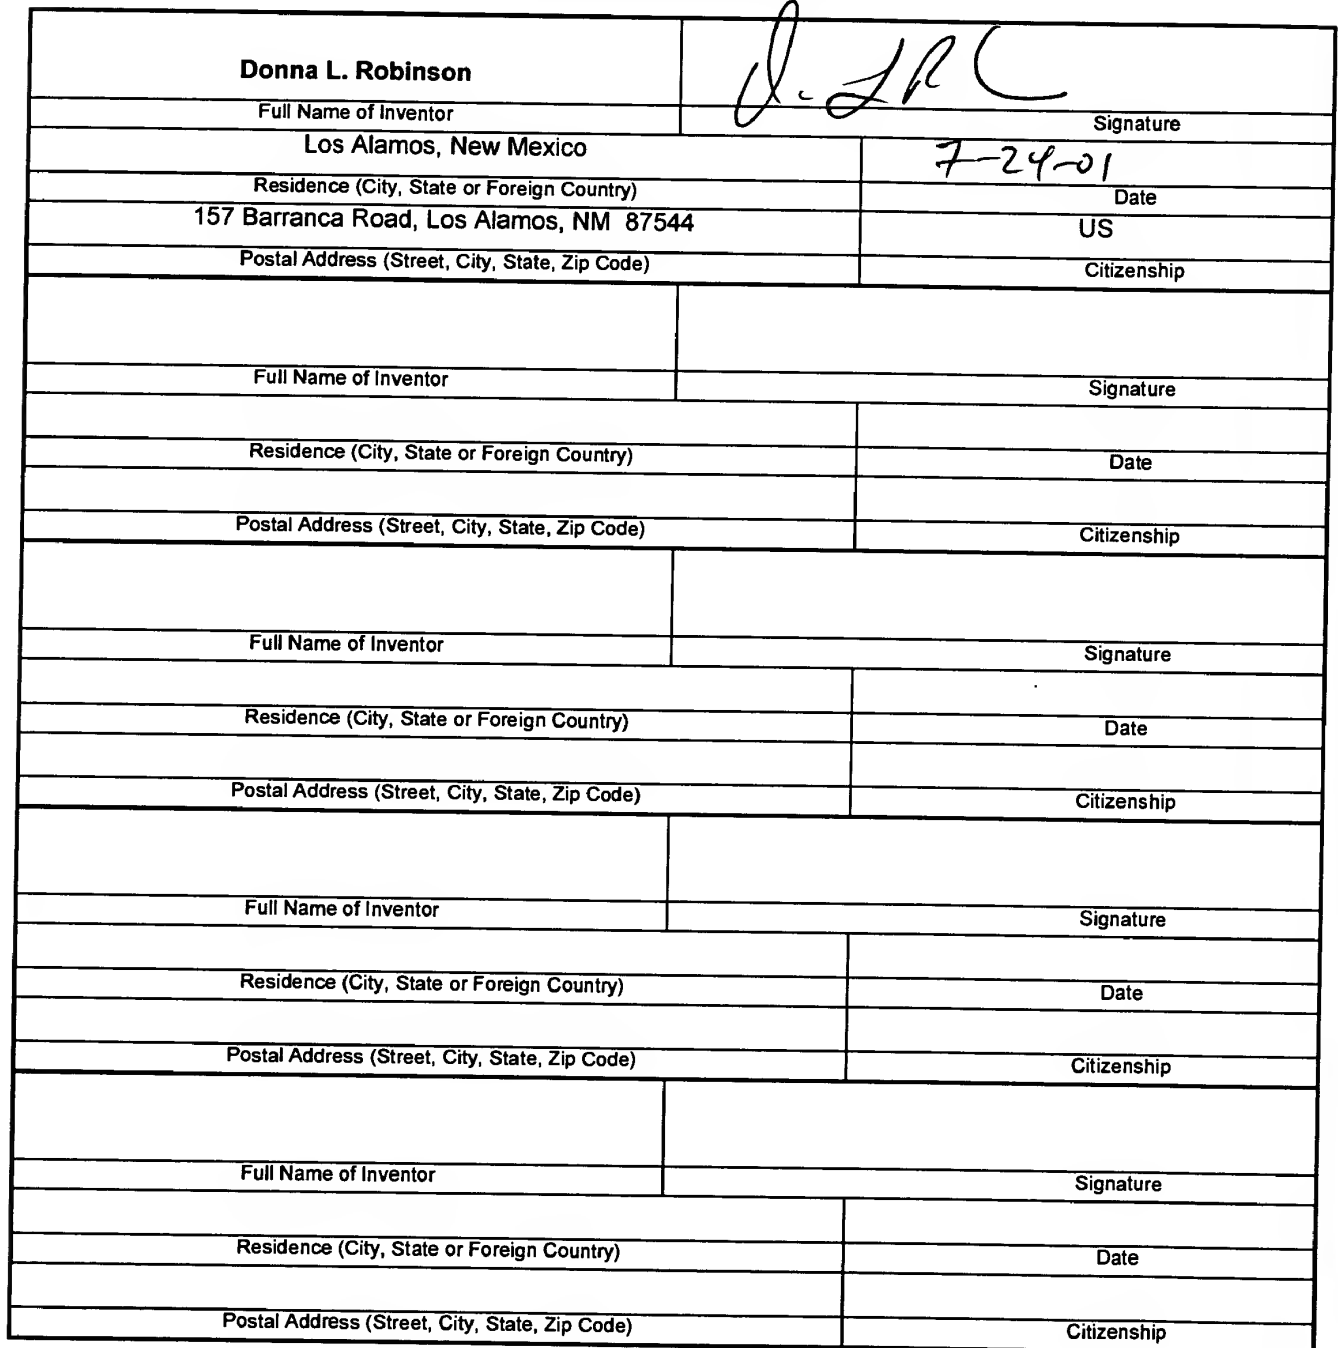 Donna L. Robinson
Full Name of Inventor Signature
Los Alamos, New Mexico 7-24-01
Residence (City, State or Foreign Country) Date
157 Barranca Road, Los Alamos, NM 87544 US
Postal Address (Street, City, State, Zip Code) Citizenship
Full Name of Inventor Signature
Residence (City, State or Foreign Country) Date
Postal Address (Street, City, State, Zip Code) Citizenship
Full Name of Inventor Signature
Residence (City, State or Foreign Country) Date
Postal Address (Street, City, State, Zip Code) Citizenship
Full Name of Inventor Signature
Residence (City, State or Foreign Country) Date
Postal Address (Street, City, State, Zip Code) Citizenship
Full Name of Inventor Signature
Residence (City, State or Foreign Country) Date
Postal Address (Street, City, State, Zip Code) Citizenship